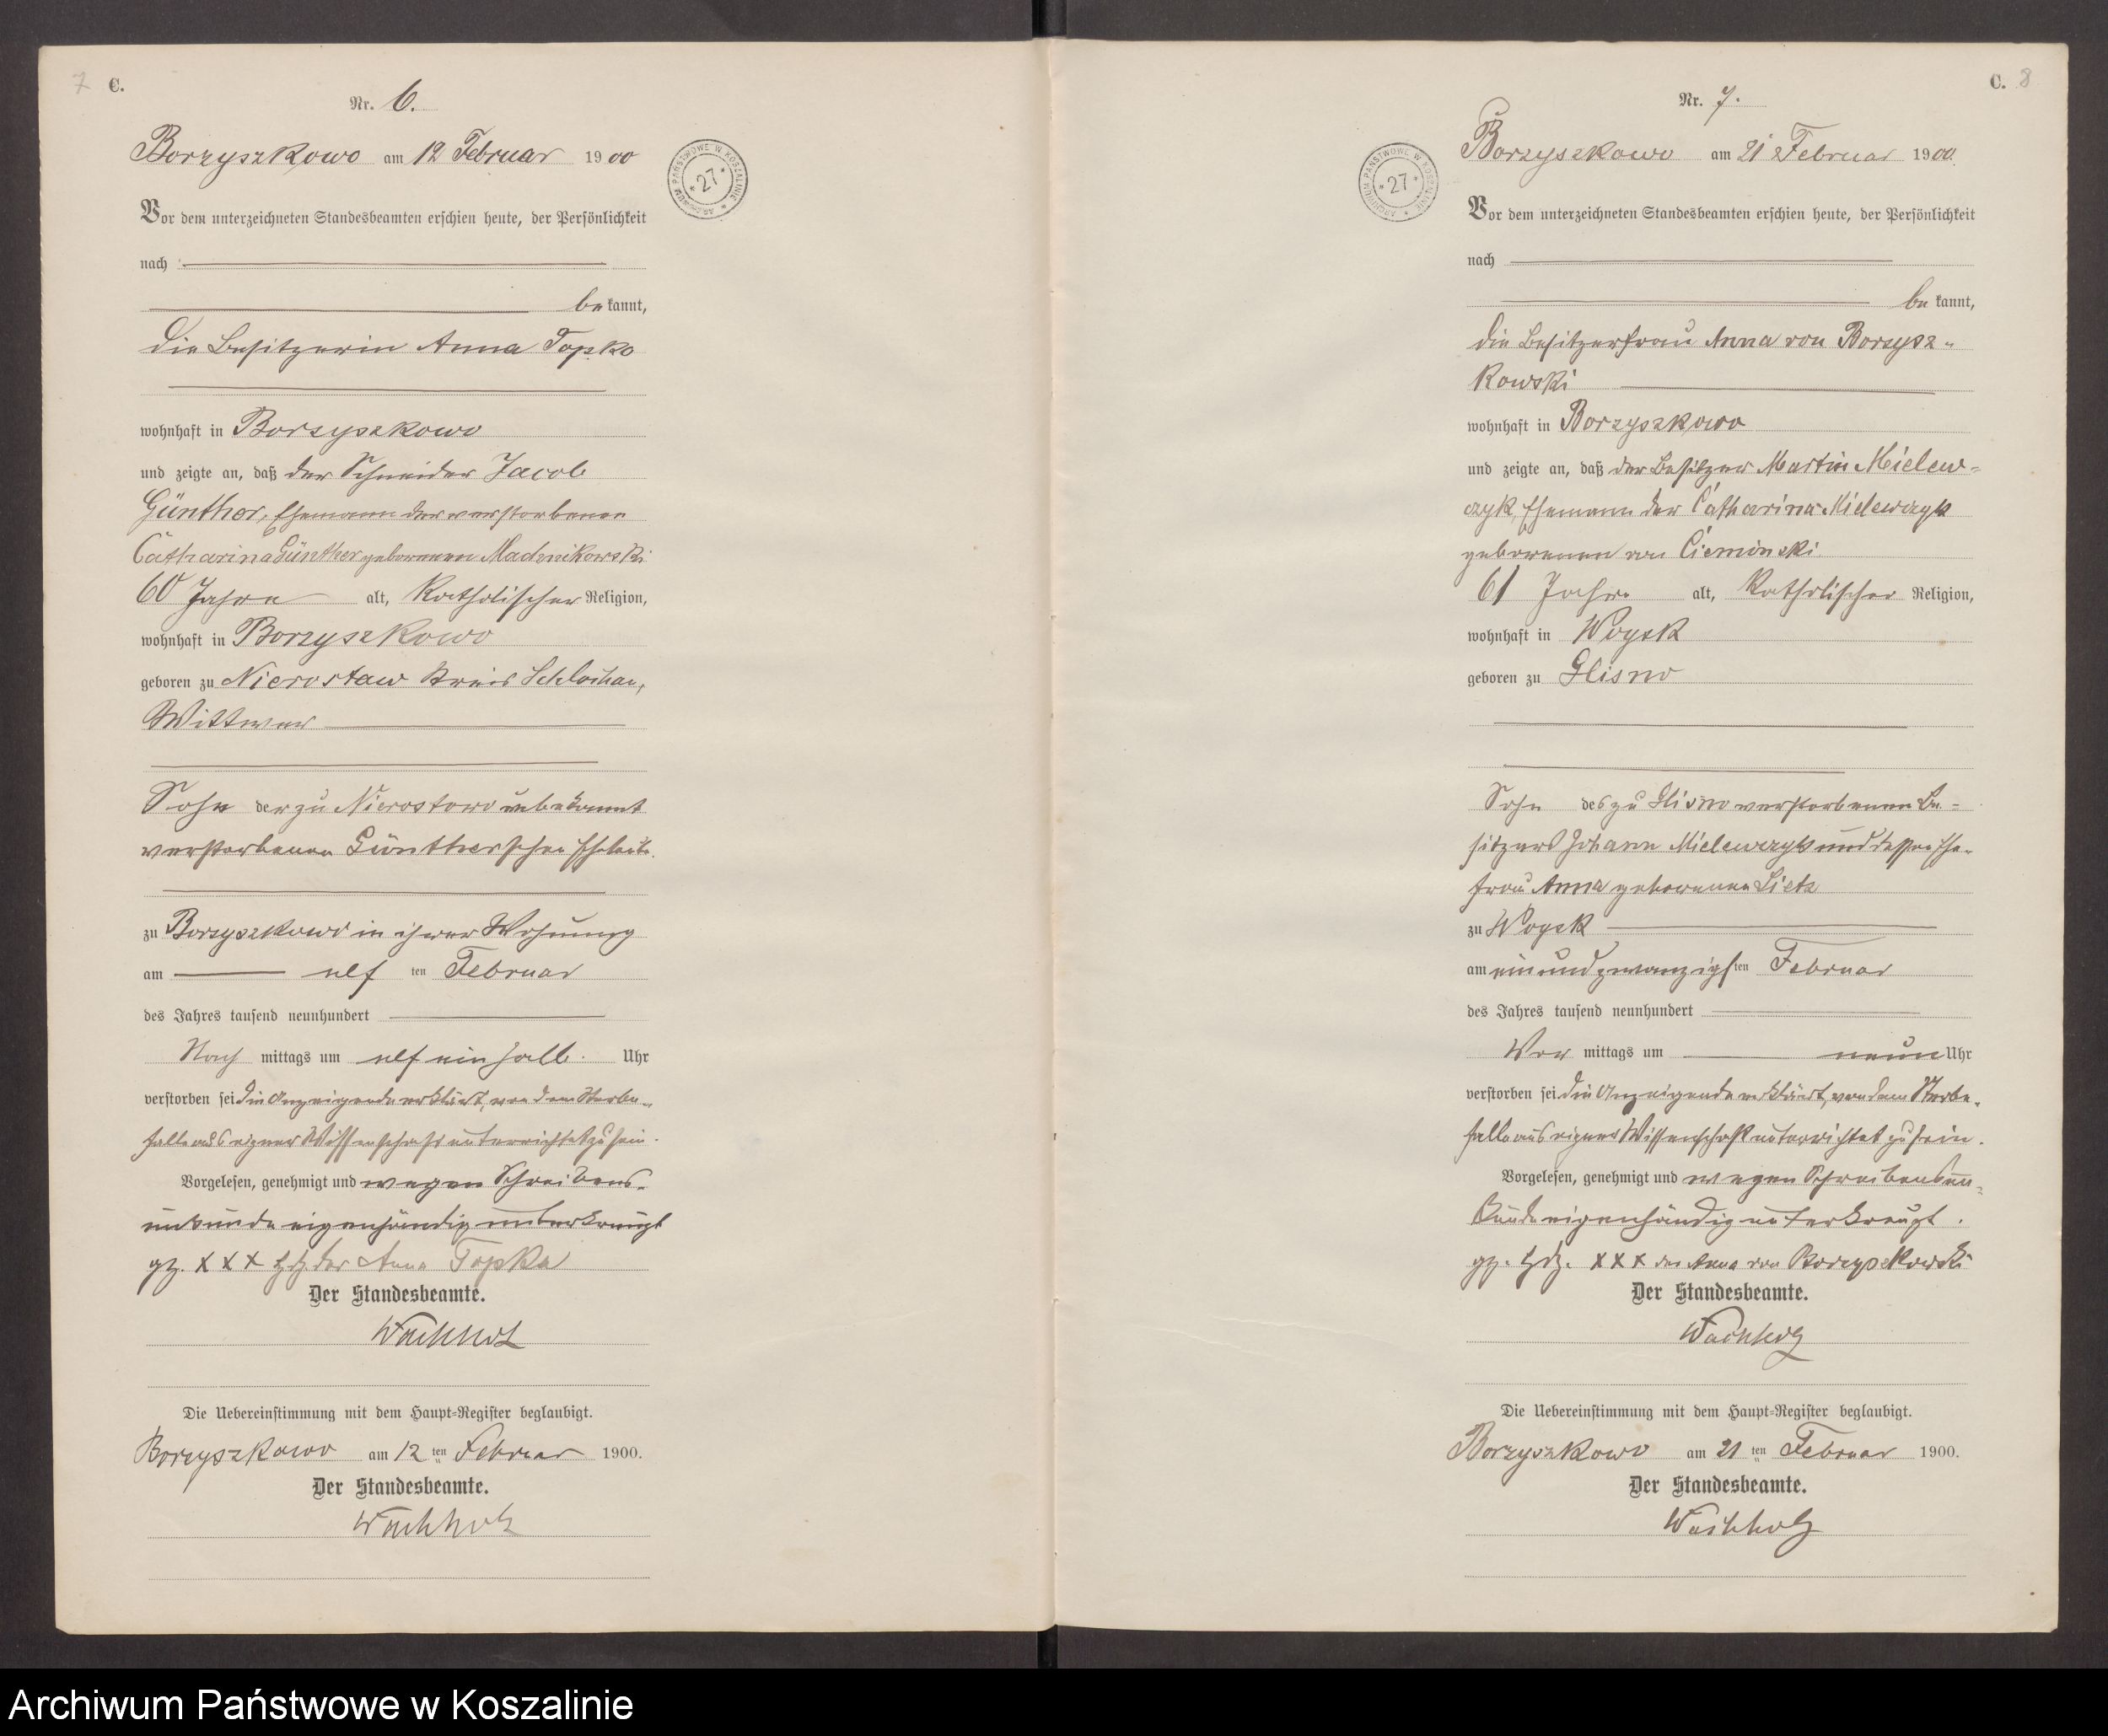 7 C.
Nr. 6.
Borzyszkowo am 12 Februar 1900
ARCHIWUM PAŃSTWOWE W KOSZALINIE * 27 *
Vor dem unterzeichneten Standesbeamten erschien heute, der Persönlichkeit
nach
bekannt,
die Besitzerin Anna Topko
wohnhaft in Borzyszkowo
und zeigte an, daß der Schneider Jacob
Günther, Ehemann der verstorbenen
Catharina Günther geborenen
60 Jahre alt, katholischer Religion,
wohnhaft in Borzyszkowo
geboren zu Nierostaw Kreis Schlochau,
Wittwer
Sohn der zu Nierostowo unbekannt
verstorbenen Güntherschen Eheleute.
zu Borzyszkowo in ihrer Wohnung
am elf ten Februar
des Jahres tausend neunhundert
Nach mittags um elf ein halb Uhr
verstorben sei die Anzeigende erklärt, von dem Sterbe-
falle aus eigener Wissenschaft unterrichtet zu sein.
Vorgelesen, genehmigt und wegen Schreibens-
unkunde eigenhändig unterkreuzt
gz. x x x hdz. der Anna Topka
Der Standesbeamte.
Wachholz
Die Uebereinstimmung mit dem Haupt-Register beglaubigt.
Borzyszkowo am 12 ten Februar 1900.
Der Standesbeamte.
Wachholz
C. 8
Nr. 7.
Borzyszkowo am 21 Februar 1900.
ARCHIWUM PAŃSTWOWE W KOSZALINIE * 27 *
Vor dem unterzeichneten Standesbeamten erschien heute, der Persönlichkeit
nach
bekannt,
die Besitzerfrau Anna von Borzysz-
kowski
wohnhaft in Borzyszkowo
und zeigte an, daß der Besitzer Martin Mielew-
czyk, Ehemann der Catharina Mielewczyk
geborenen von Cieminski
61 Jahre alt, katholischer Religion,
wohnhaft in Woysk
geboren zu Glisno
Sohn des zu Glisno verstorbenen Be-
sitzers Johann Mielewczyk und dessen Ehe-
frau Anna geborenen Lietz
zu Woysk
am ein und zwanzigsten Februar
des Jahres tausend neunhundert
Vor mittags um neun Uhr
verstorben sei die Anzeigende erklärt, von dem Sterbe-
falle aus eigener Wissenschaft unterrichtet zu sein.
Vorgelesen, genehmigt und wegen Schreibensun-
kunde eigenhändig unterkreuzt.
gz. hdz. x x x der Anna von Borzyszkowski
Der Standesbeamte.
Wachholz
Die Uebereinstimmung mit dem Haupt-Register beglaubigt.
Borzyszkowo am 21 ten Februar 1900.
Der Standesbeamte.
Wachholz
Archiwum Państwowe w Koszalinie